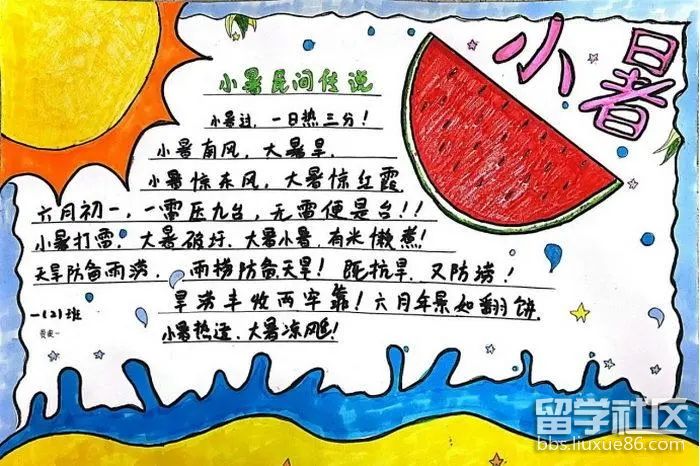 小暑
小暑民间传说
小暑过，一日热三分！
小暑南风，大暑旱
小暑惊东风，大暑惊红霞
六月初一，一雷压九台，无雷便是台！！
小暑打雷，大暑破圩，大暑小暑，有米懒煮！
天旱防备雨涝，雨捞防备天旱！既抗旱，又防涝！
旱涝丰收两牢靠！六月年景如翻饼，
小暑热过，大暑凉飕！
一（2）班
留学社区
bbs.liuxue86.com